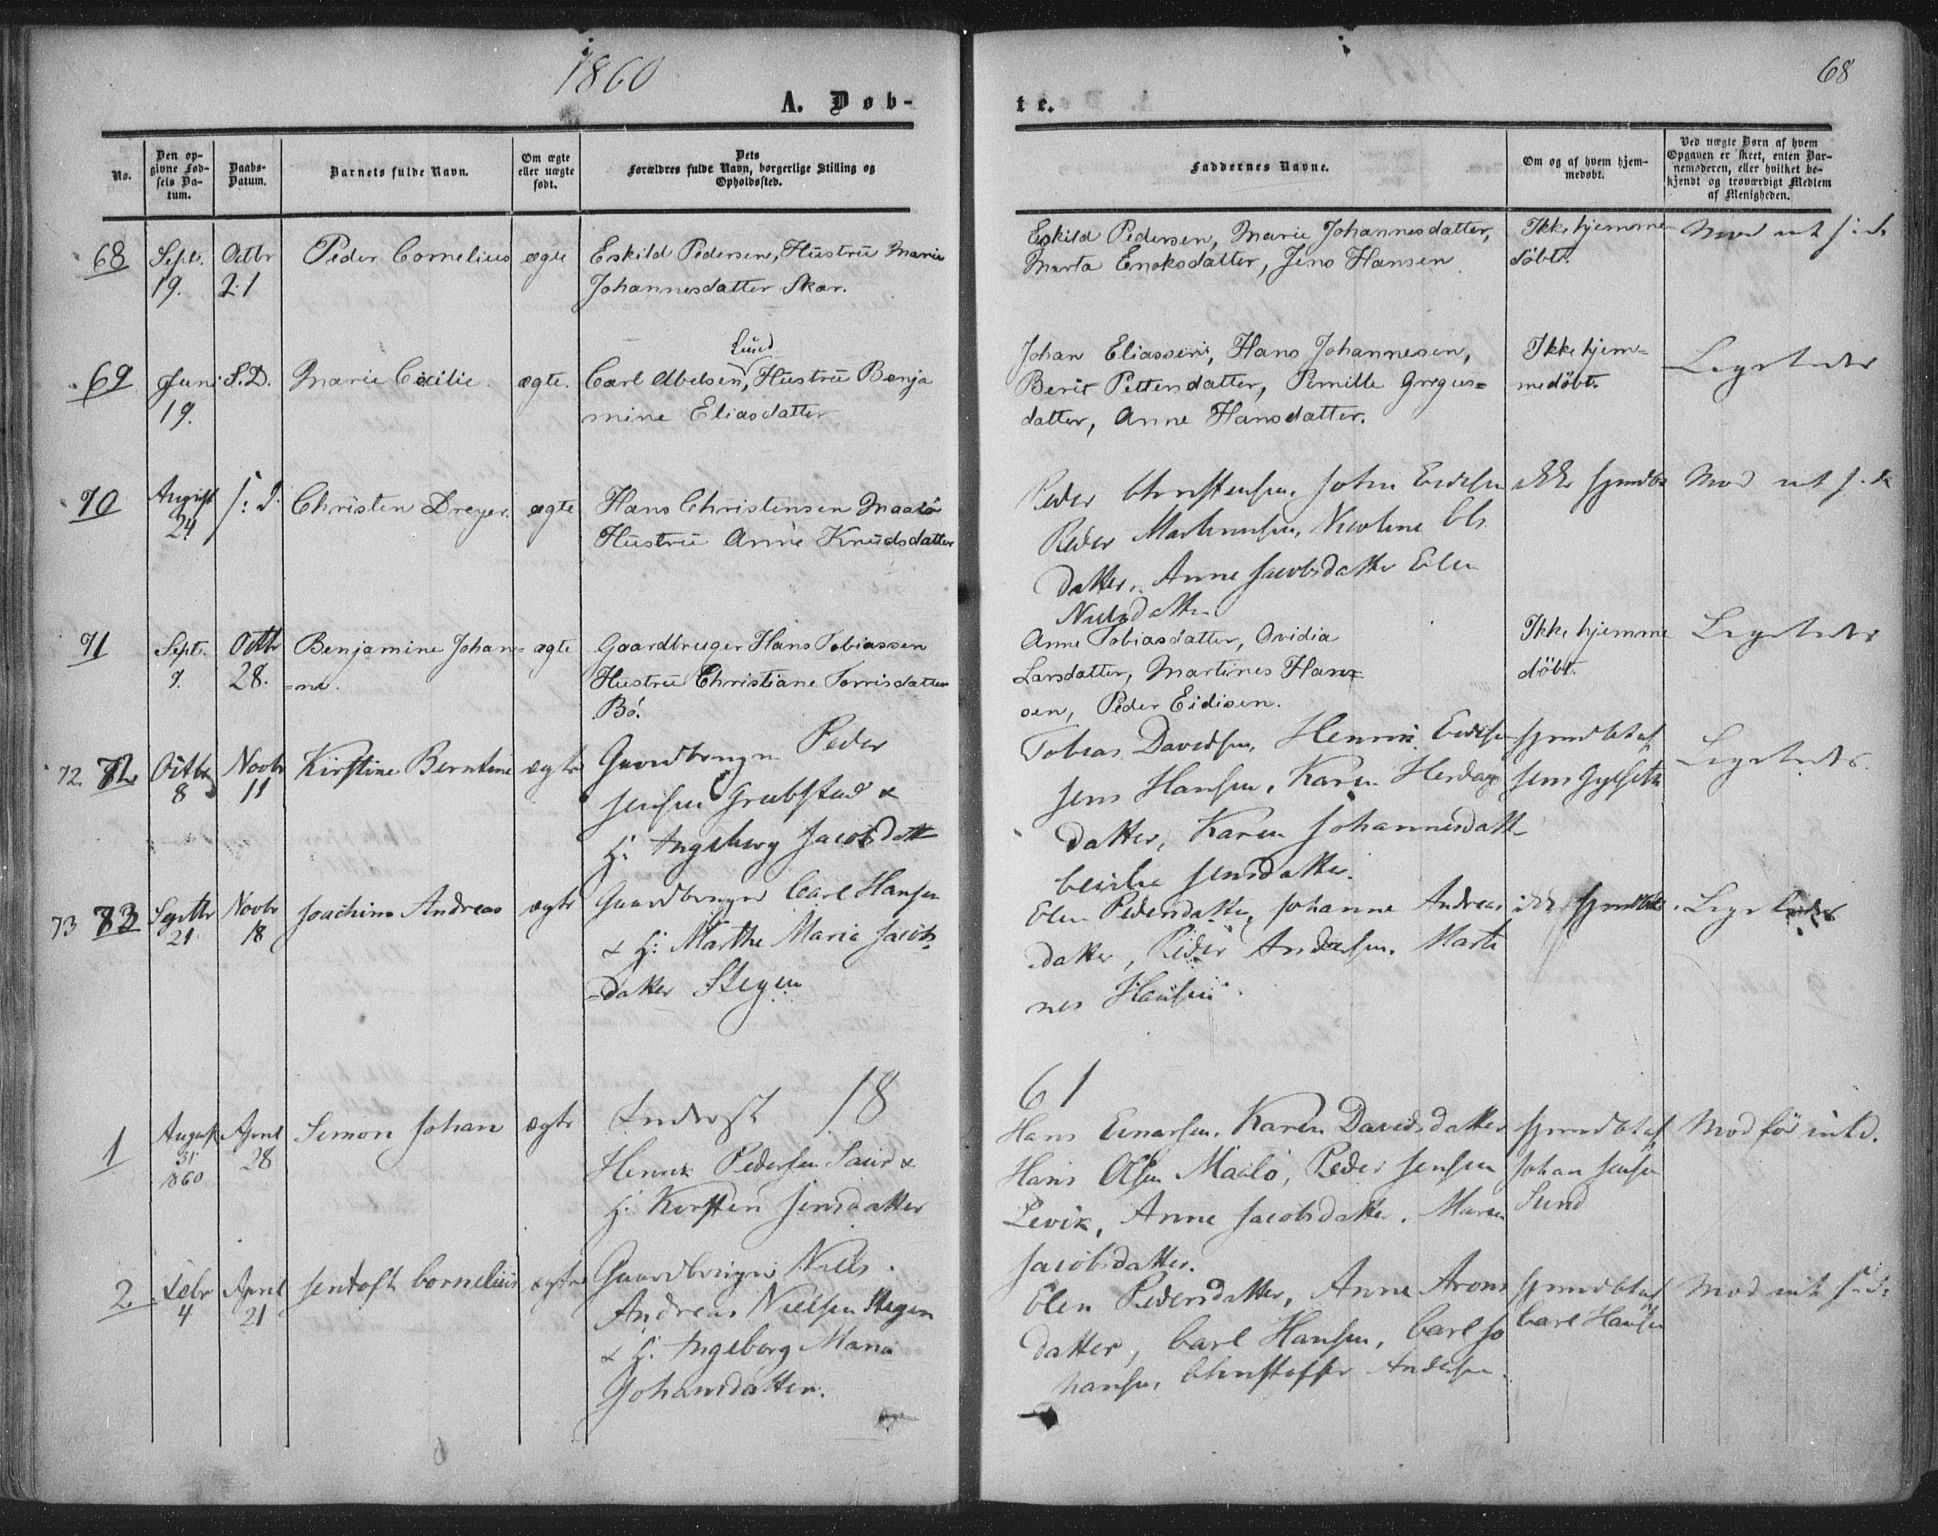 1860
68
A. Døb-
te.
No.
Den op-
givne Fød-
sels Da-
tum.
Daabs-
Datum.
Barnets fulde Navn.
Om ægte
eller uægte
født.
Dets
Forældres fulde Navn, borgerlige Stilling og
Opholdssted.
Faddernes Navne.
Om og af hvem hjem-
medøbt.
Ved uægte Børn af hvem
Opgaven er skeet, enten Bar-
nemoderen, eller hvilket be-
kjendt og troværdigt Medlem
af Menigheden.
68
Sept.
19.
Octbr
21
Peder Cornelius
ægte
Eskild Pedersen, Hustru Marie
Johannesdatter Skar.
Eskild Pedersen, Marie Johannesdatter,
Marta Enoksdatter, Jens Hansen
Ikke hjemme
døbt.
Mod int s: d.
69
Juni
19.
S.D.
Marie Cecilie.
ægte.
Lund
Carl Abelsen, Hustru Benja
mine Eliasdatter
Johan Eliassen, Hans Johannesen,
Berit Pettersdatter, Pernille Gregus=
datter, Anne Hansdatter.
Ikke hjem=
medøbt.
70
August
24
s: d.
Christen Dreyer.
ægte
Hans Christensen Maalö
Hustru Anne Knudsdatter
Peder Christensen, John Eidisen
Peder Martinusen, Nicoline Ols
datter, Anne Jacobsdatter Elen
Nielsdatter
ikke hjmdbt
Mod int s. d.
71
Sept.
7.
Octbr
28.
Benjamine Johan=
=ne.
ægte
Gaardbruger Hans Tobiassen
Hustru Christiane Torrisdatter
Bö.
Anne Tobiasdatter, Ovidia
Larsdatter, Martines Han=
sen, Peder Eidisen.
Ikke hjemme
døbt.
72. 72
Octbr
8
Novbr
11
Kirstine Berntine
ægte
Gaardbruger Peder
Jensen Grubstad &
H. Ingeborg Jacobsdatt
Tobias Davidsen, Henrik Eidisen
Jens Hansen, Karen Herdags
datter, Karen Johannesdatt
Cecilie Jensdatter.
hjmdbt af
Jens Gylseth
73 73
Septbr
21
Novbr
18
Joachim Andreas
ægte
Gaardbruger Carl Hansen
& H: Marthe Maria Jacobs
=datter Stegen
Elen Pedersdatter, Johanne Andreas
datter, Peder Andersen. Marti
nes Hansen.
ikke hjmdbt.
18
61
1
August
31
1860
April
28
Simon Johan
ægte
Inderst
Henrik Pedersen Saur &
H. Kirsten Jensdatter
Hans Einarsen. Karen Davidsdatter
Hans Olsen Maalö, Peder Jensen
Levik, Anne Jacobsdatter. Maren
Jacobsdatter.
hjmdbt af
Johan Jensen
Lund
2.
Febr
4
April
21
Jentoft Cornelius
ægte
Gaardbruger Niels
Andreas Nielsen Stegen
& H. Ingeborg Maria
Johansdatter.
Elen Pedersdatter, Anne Arons
datter, Carl Hansen, Carl Jo
hansen, Christoffer Andersen.
hjmdbt af
Carl Hansen
Mod int s: d: